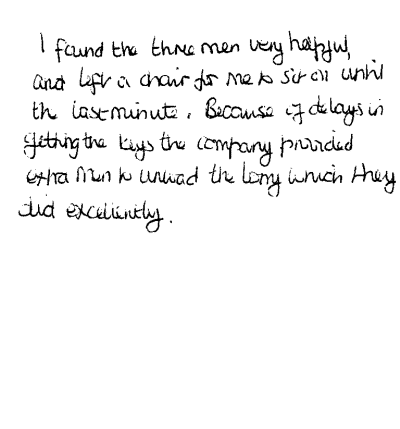 I found the three men very helpful,
and left a chair for me to sit on until
the last minute. Because of delays in
getting the keys the company provided
extra men to unload the lorry which they
did excellently.